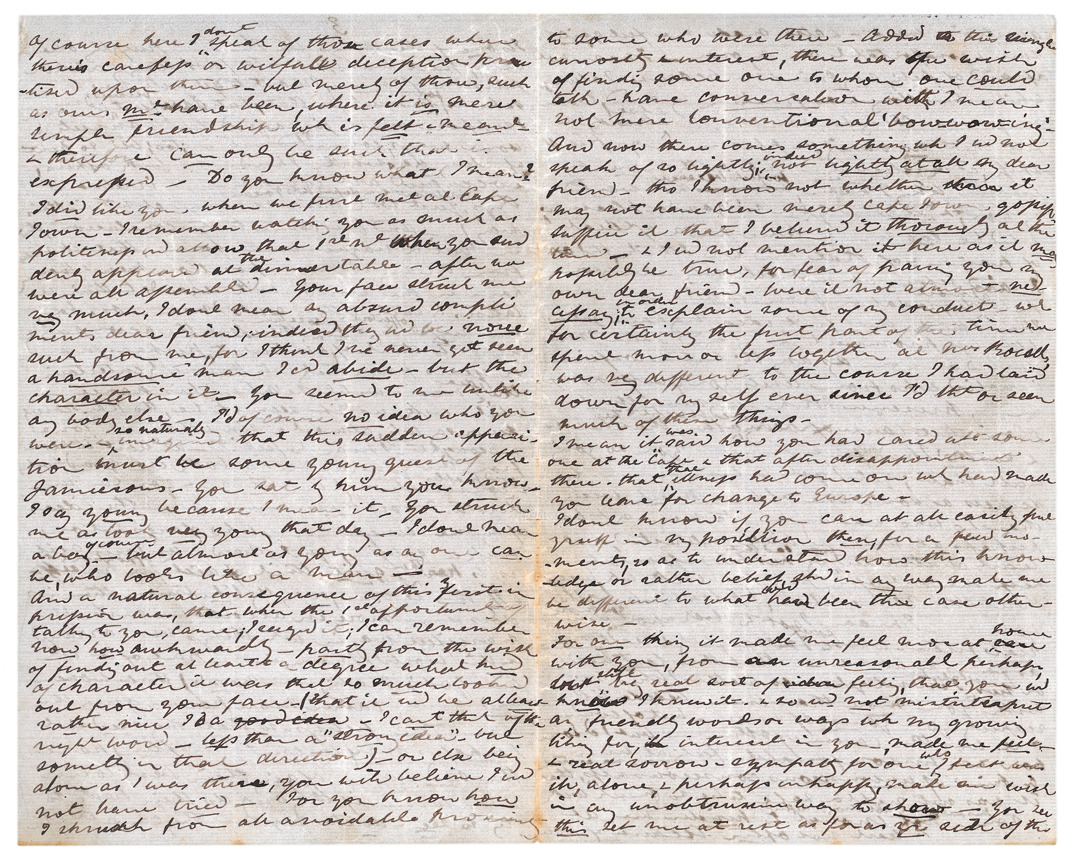 Of course here I don't speak of those cases where
there is careless or wilfull deception prac
-tised upon them - but merely of those, such
as ours mt have been, where it is mere
simple friendship wh is felt & meant -
& therefore can only be such that is
expressed - Do you know what I mean?
I did like you. when we first met at Cape
Town - I remember watching you as much as
politeness wd allow, that 1st night when you sud
denly appeared at the dinner table - after we
were all assembled - Your face struck me
very much, I dont mean any absurd compli
ments dear friend, indeed they wd be none
such from me, for I think I've never yet seen
a handsome man I cd abide - but the
character in it - You seemed to me unlike
any body else - I'd of course no idea who you
were - so naturally that this sudden appari-
tion must be some young guest of the
Jamiesons - You sat by him you know -
I say young because I mean it - You struck
me as too very young that day - I dont mean
a boy of course - but almost as young as any one can
be, who looks like a man -
And a natural consequence of this first im
pression was, that when the 1st opportunity of
talking to you, came, I seized it, I can remember
now how awkwardly - partly from the wish
of finding out at least a degree what kind
of character it was that so much looked
out from your face - (that it wd be at least
rather nice I'd a good idea - I cant think of the
right word - less than a "strong idea" - but
something in that direction) - or else being
alone as I was there, you will believe I wd
not have tried - For you know how
I shrink from all avoidable pressing
to some who were there - Added to this simple
curiosity & interest, there was the wish
of finding some one to whom one could
talk - have conversation with I mean
not mere conventional 'bowwowing' -
And now there comes something wh I wd not
speak of so lightly, indeed not lightly at all my dear
friend - tho I know not whether it
may not have been merely Cape Town gossip
suffice it that I believed it thoroughly at the
time - & I wd not mention it here as it may
possibly be true, for fear of paining you my
own dear friend - were it not almost ne-
cessary in order to explain some of my conduct - wh
for certainly the first part of the time we
spent more or less together at
was very different to the course I had laid
down for myself ever since I'd tht or seen
much of these things -
I mean it was said how you had cared abt some
one at the "Cape" & that after disappointment
there - that illness had come on wh had made
you leave for change to Europe -
I dont know if you can at all easily put
yrself in my position then, for a few mo-
ments, so as to understand how this know-
ledge or rather belief, shd in any way make me
be different to what had been the case other-
wise -
For one thing it made me feel more at home
with you, from an unreasonable perhaps,
but still real sort of feeling, that you wd
know I knew it. & so wd not misinterpret
any friendly words or ways wh my growing
liking for, & interest in you, made me feel -
& real sorrow - sympathy for one who I felt was
ill, alone, & perhaps unhappy, make me wish
in any unobtrusive way to show - You see
this set me at rest as far as yr side of the